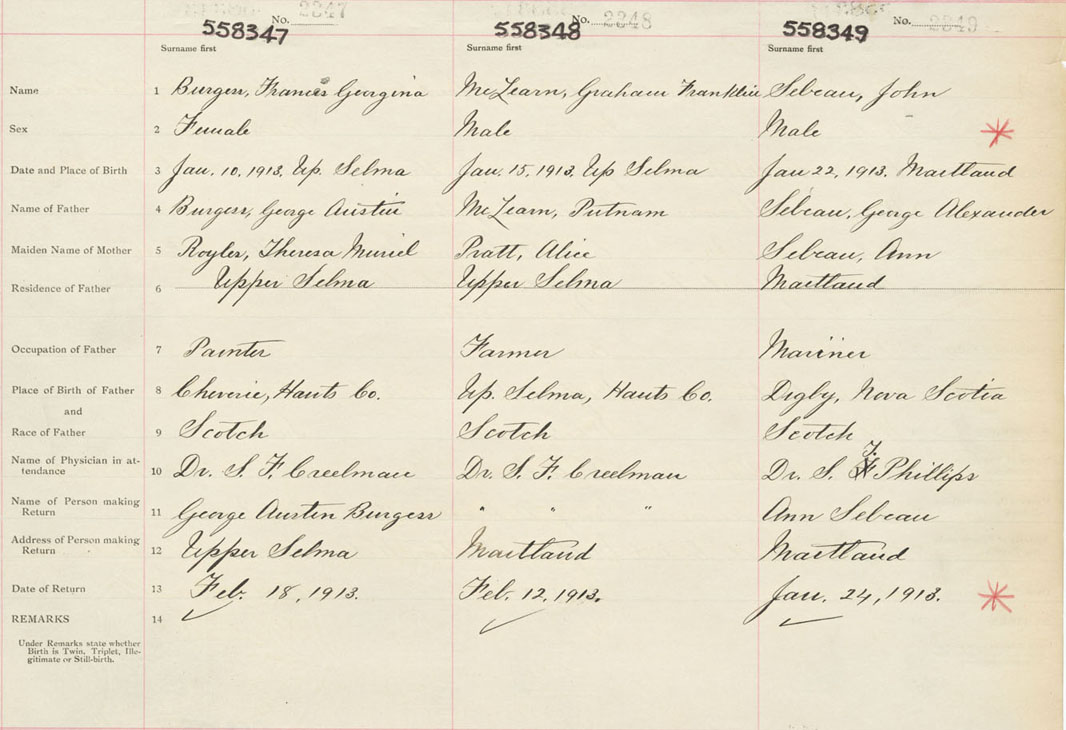 No. 2347 No. 2348 No. 2349
558347 558348 558349
Surname first Surname first Surname first
Name 1 Burgess, Frances Georgina McLearn, Graham Franklin Sebeau, John
Sex 2 Female Male Male
Date and Place of Birth 3 Jan. 10, 1913, Up. Selma Jan. 15, 1913, Up Selma Jan 22, 1913. Maitland
Name of Father 4 Burgess, George Austin McLearn, Putnam Sebeau, George Alexander
Maiden Name of Mother 5 Theresa Muriel Pratt, Alice Sebeau, Ann
Residence of Father 6 Upper Selma Upper Selma Maitland
Occupation of Father 7 Painter Farmer Mariner
Place of Birth of Father 8 Cheverie, Hants Co. Up. Selma, Hants Co. Digby, Nova Scotia
and
Race of Father 9 Scotch Scotch Scotch
Name of Physician in at-
tendance 10 Dr. S. F. Creelman Dr. S. F. Creelman Dr. S. T. Phillips
Name of Person making
Return 11 George Austin Burgess " " " Ann Sebeau
Address of Person making
Return 12 Upper Selma Maitland Maitland
Date of Return 13 Feb. 18, 1913. Feb. 12, 1913. Jan. 24, 1913.
REMARKS 14
Under Remarks state whether
Birth is Twin, Triplet, Ille-
gitimate or Still-birth.